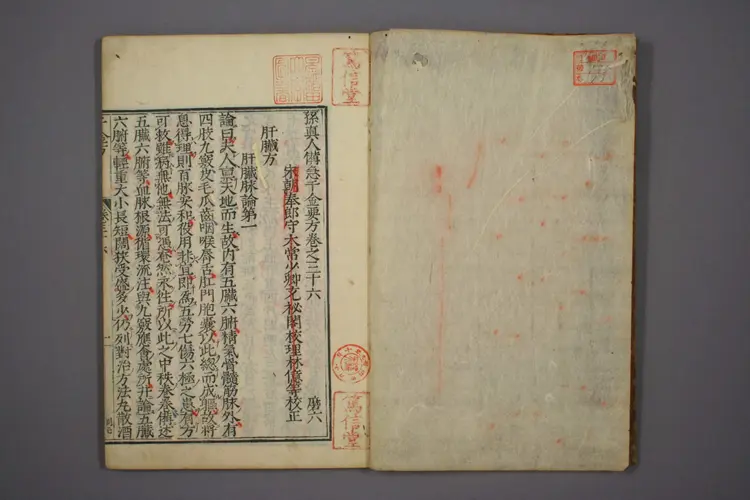 孫真人備急千金要方卷之三十六
宋朝奉郎守太常少卿充秘閣校理林億等校正
肝臟方
肝臟脉論第一
論曰夫人稟天地而生故内有五臟六腑精氣骨髓筋脉外有
四肢九竅皮毛爪齒咽喉脣舌肛門胞囊以此總而成軀故將
息得理則百脉安和役用非宜即為五勞七傷六極之患有方
可救雖病無他無法可憑奄然永往所以此之中秩卷卷備述
五臟六腑等血脉根源循環流注與九竅應會處所并論五臟
六腑等輕重大小長短闊狹受盛多少仍列對治方法丸散酒
篤信堂
篤信堂